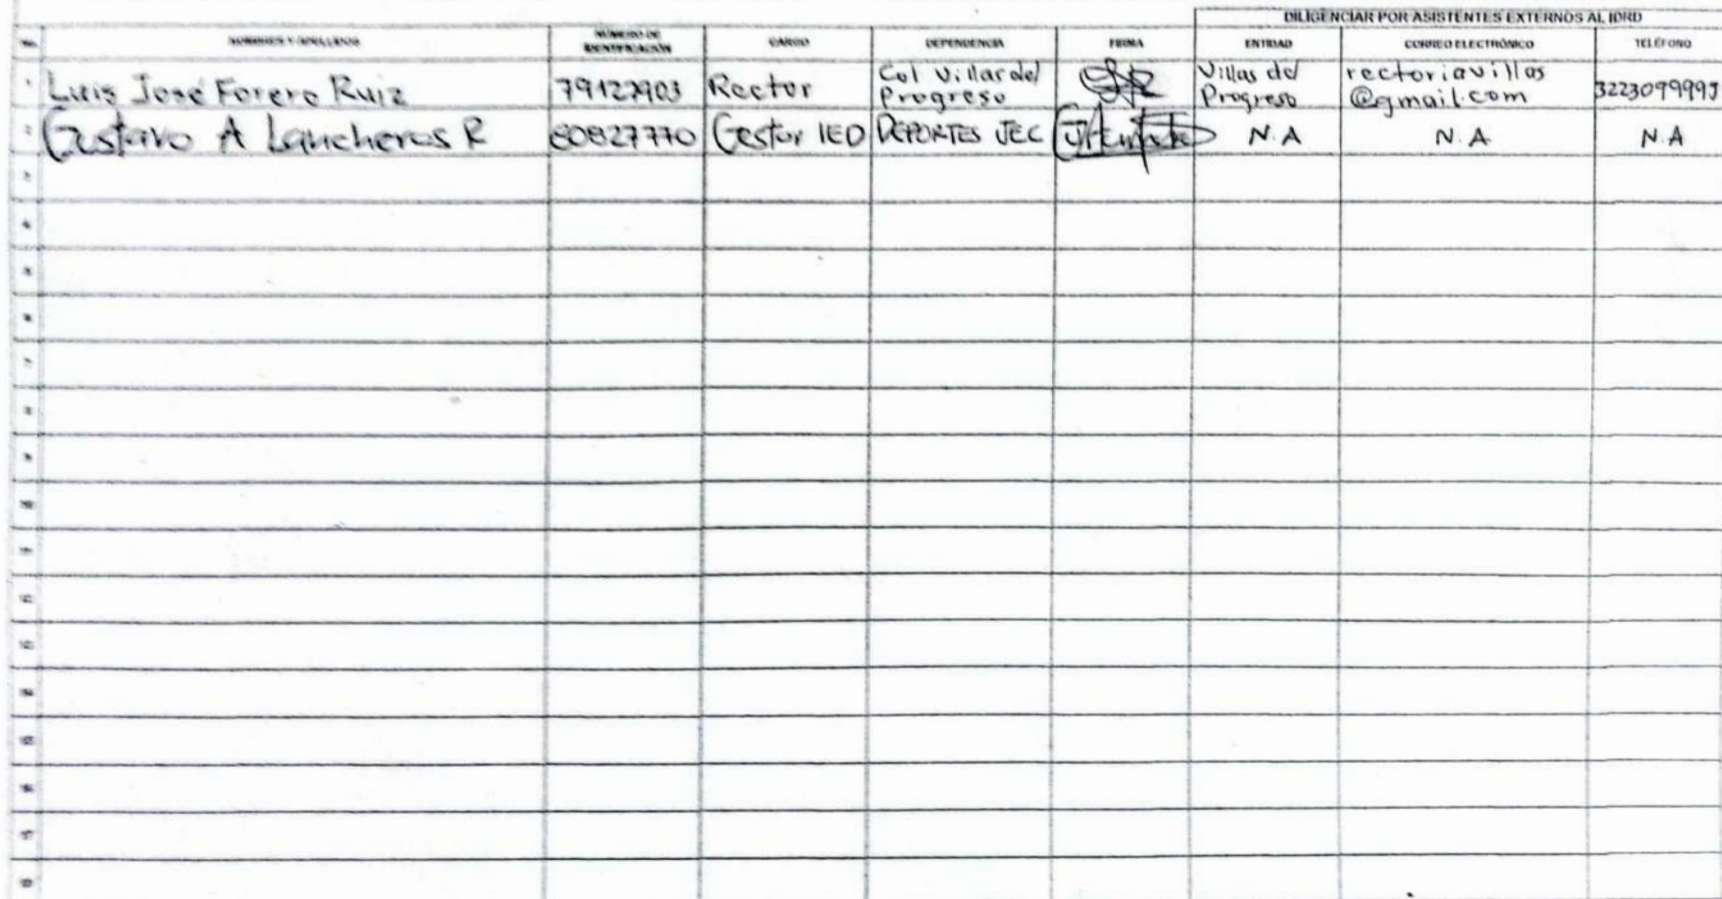 DILIGENCIAR POR ASISTENTES EXTERNOS AL IDRD
No. NOMBRES Y APELLIDOS NÚMERO DE IDENTIFICACIÓN CARGO DEPENDENCIA FIRMA ENTIDAD CORREO ELECTRÓNICO TELÉFONO
1 Luis José Forero Ruiz 79127903 Rector Col Villas del Progreso Villas del Progreso rectoriavillas@gmail.com 3223099993
2 Gustavo A Lancheros R 80827770 Gestor IED DEPORTES JEC N.A N.A N.A
3
4
5
6
7
8
9
10
11
12
13
14
15
16
17
18